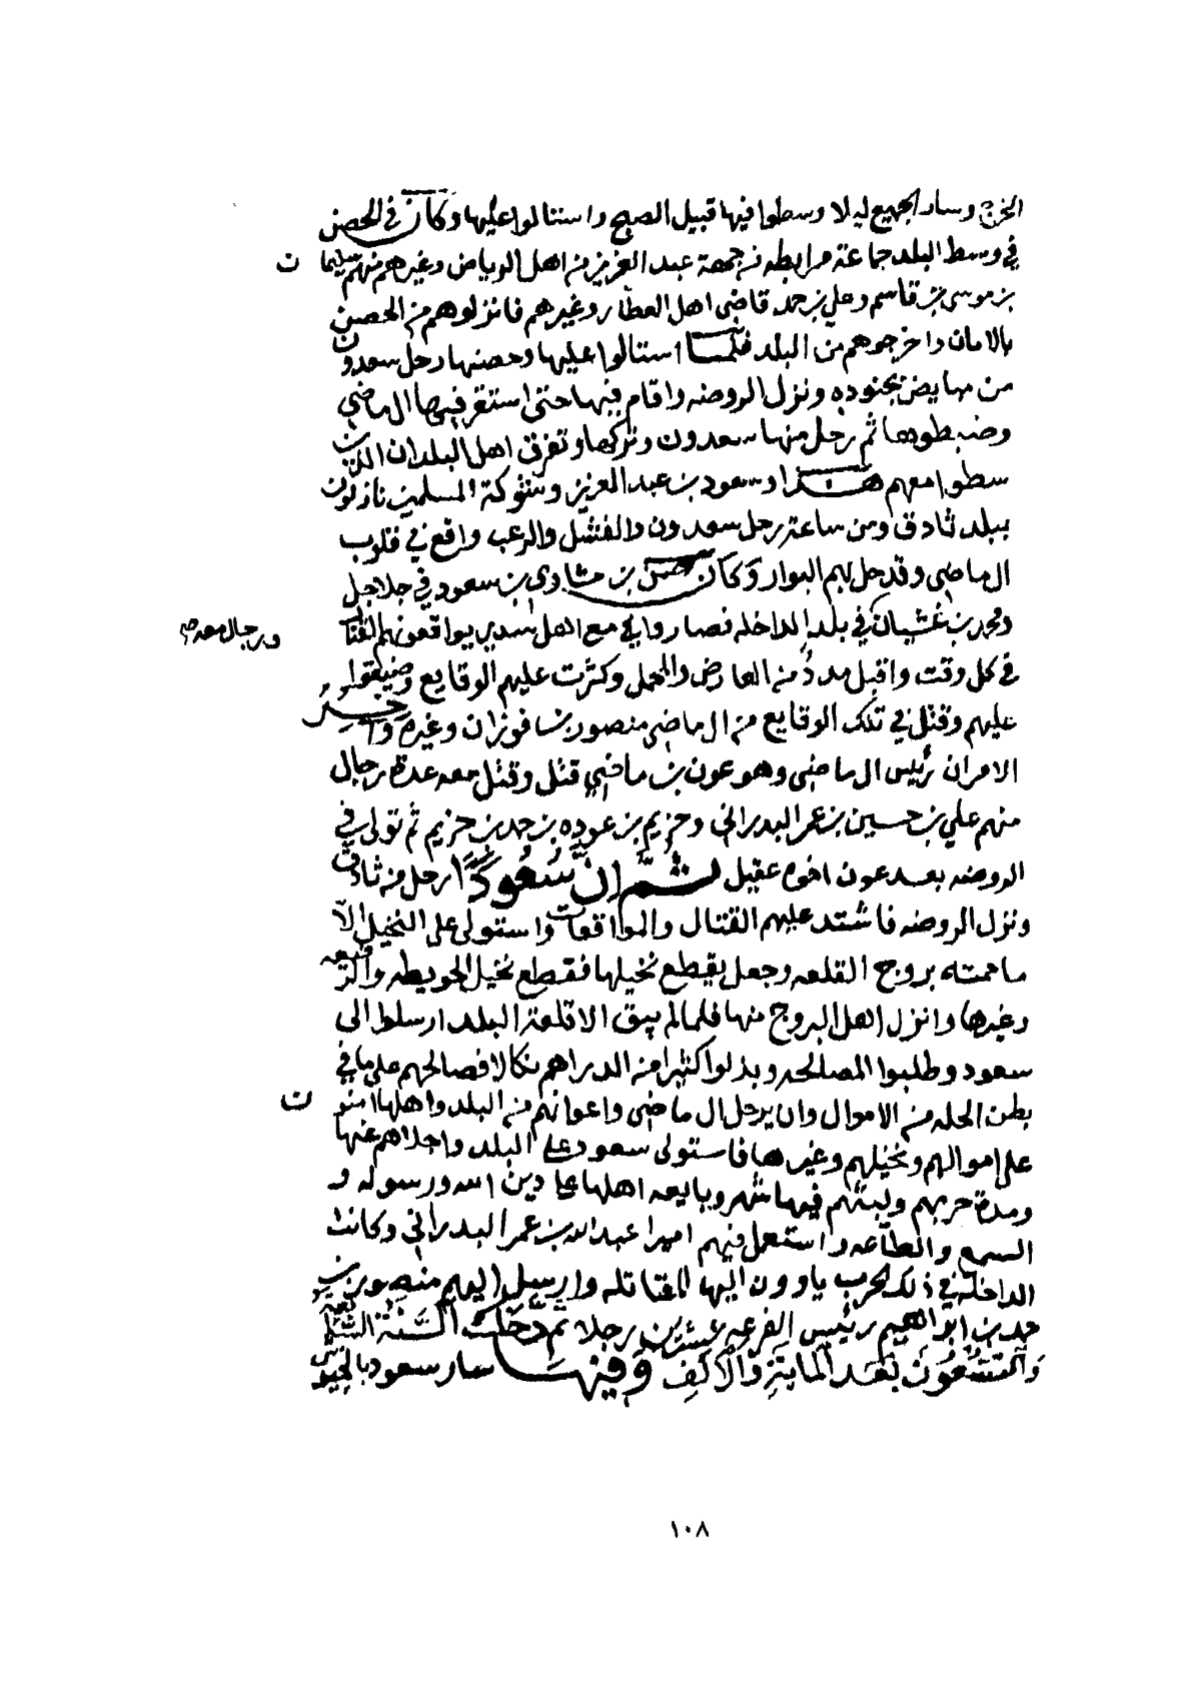 الخرج وسار الجميع ليلا وسطوا فيها قبيل الصبح واستالوا عليها وكان في الحصن
في وسط البلد جماعة مرابطه من جهة عبد العزيز من اهل الرياض وغيرهم منهم سليمان
بن موسى بن قاسم وعلي بن حمد قاضي اهل العطار وغيرهم فانزلوهم من الحصن
بالامان واخرجوهم من البلد فلما استالوا عليها وحصنها رحل سعدون
من مبايض بجنوده ونزل الروضه واقام فيها حتى استقر فيها ال ماضي
وضبطوها ثم رحل منها سعدون وتركها وتفرق اهل البلدان الذين
سطوا معهم هذا وسعود بن عبد العزيز وشوكة المسلمين نازلون
ببلد ثادق ومن ساعة رحل سعدون والفشل والرعب واقع في قلوب
ال ماضي وقد حل بهم البوار وكان حسن بن مشاري بن سعود في جلاجل
ومحمد بن غشيان في بلد الداخله فصاروا في مع اهل سدير يواقعونهم القتال
ورجال معه
في كل وقت واقبل مدد من العارض والمحمل وكثرت عليهم الوقايع وضيقوا
عليهم وقتل في تلك الوقايع من ال ماضي منصور بن فوزان وغيره واخر
الامر ان رئيس ال ماضي وهو عون بن ماضي قتل وقتل معه عدة رجال
منهم علي بن حسين بن عمر البدراني وحزيم بن عوده بن حمد بن حزيم ثم تولى في
الروضه بعد عون اخوه عقيل ثم ان سعودا رحل من ثادق
ونزل الروضه فاشتد عليهم القتال والمواقعات واستولى على النخيل الا
ما حمته بروج القلعه وجعل يقطع نخيلها فقطع نخيل الحويطه والرفيعه
وغيرها وانزل اهل البروج منها فلما لم يبق الا قلعة البلد ارسلوا الى
سعود وطلبوا المصالحه وبذلوا كثيرا من الدراهم نكالا فصالحهم على ما في
بطن الحله من الاموال وان يرحل ال ماضي واعوانهم من البلد واهلها امنون
على اموالهم ونخيلهم وغيرها فاستولى سعود على البلد واجلاهم عنها
ومدة حربهم ولبثهم فيها شهر وبايعه اهلها على دين الله ورسوله و
السمع والطاعه واستعمل فيهم اميرا عبد الله بن عمر البدراني وكانت
الداخلة في ذلك الحرب ياوون اليها المقاتله وارسل اليهم منصور بن
حمد بن ابراهيم رئيس الفرعه عشرين رجلا ثم دخلت السنة السابعه
والتسعون بعد الماية والالف وفيها سار سعود بالجيوش
١٠٨